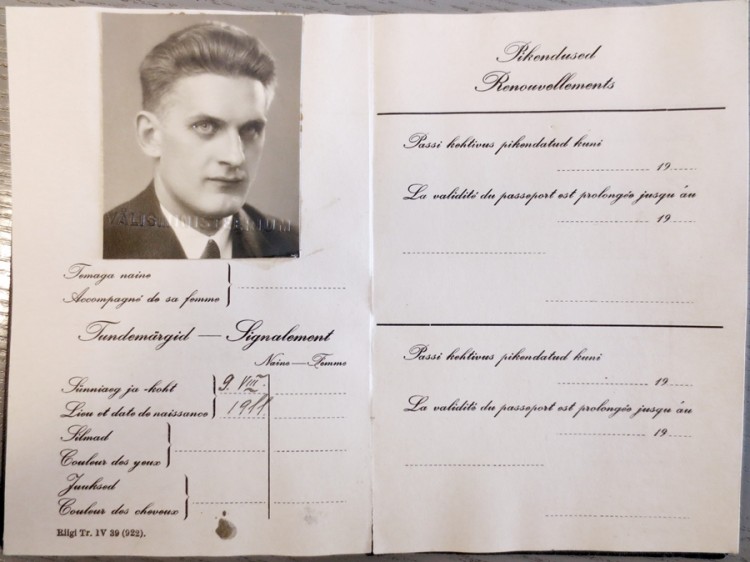 VÄLISMINISTEERIUM
Temaga naine
Accompagné de sa femme
Tundemärgid — Signalement
Naine — Femme
Sünniaeg ja -koht
9. VIII.
Lieu et date de naissance
1911
Silmad
Couleur des yeux
Juuksed
Couleur des cheveux
Riigi Tr. IV 39 (922).
Pikendused
Renouvellements
Passi kehtivus pikendatud kuni
19
La validité du passeport est prolongée jusqu'au
19
Passi kehtivus pikendatud kuni
19
La validité du passeport est prolongée jusqu'au
19